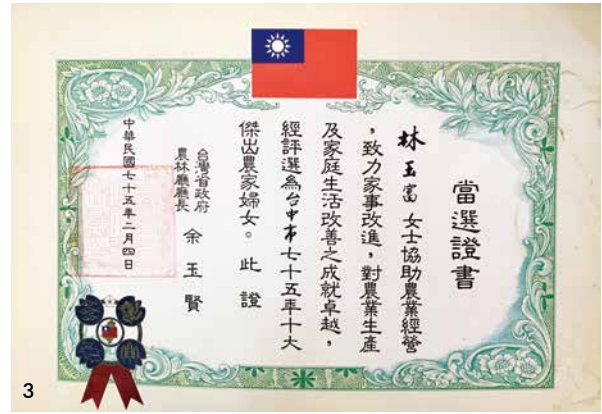 當選證書
林玉富女士協助農業經營
，致力家事改進，對農業生產
及家庭生活改善之成就卓越，
經評選為台中市七十五年十大
傑出農家婦女。此證
台灣省政府
農林廳廳長 余玉賢
中華民國七十五年二月四日
3